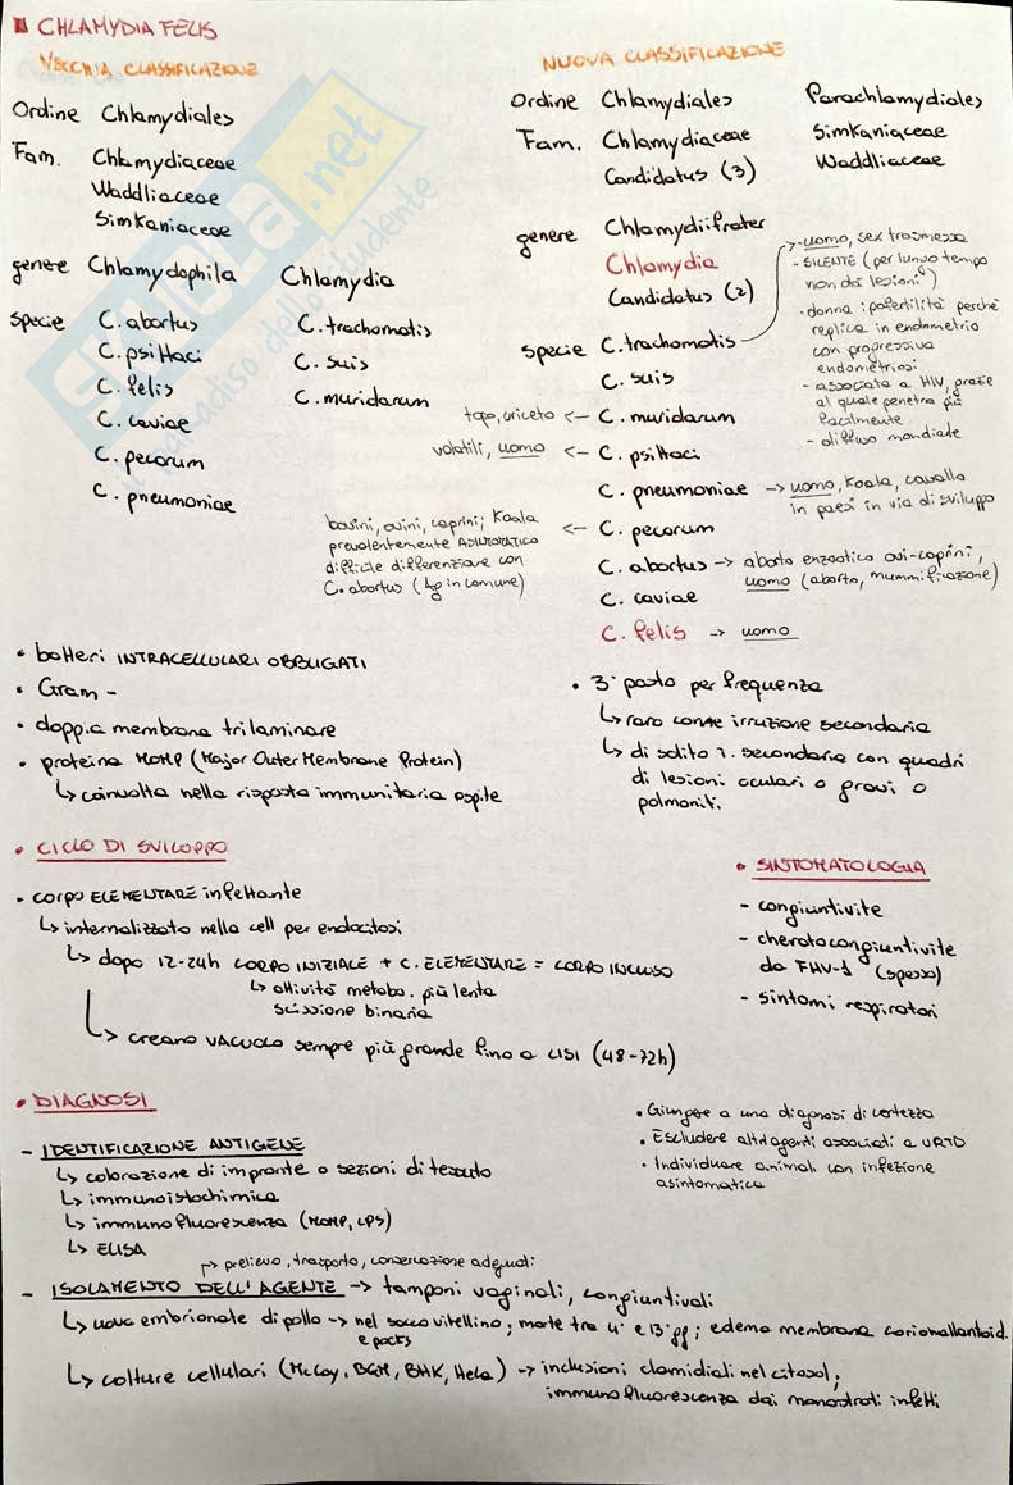 CHLAMYDIA FELIS
VECCHIA CLASSIFICAZIONE
Ordine Chlamydiales
Fam. Chlamydiaceae
Waddliaceae
Simkaniaceae
genere Chlamydophila Chlamydia
specie C. abortus C. trachomatis
C. psittaci C. suis
C. felis C. muridarum
C. caviae
C. pecorum
C. pneumoniae
NUOVA CLASSIFICAZIONE
Ordine Chlamydiales Parachlamydiales
Fam. Chlamydiaceae Simkaniaceae
Candidatus (3) Waddliaceae
genere Chlamydiifrater
Chlamydia
Candidatus (2)
specie C. trachomatis
-> uomo, sex trasmessa
- SILENTE (per lungo tempo
non dà lesioni)
- donna: ipofertilità perchè
replica in endometrio
con progressiva
endometriosi
- associata a HIV, grazie
al quale penetra più
facilmente
- diffuso mondiale
C. suis
topo, criceto <- C. muridarum
volatili, uomo <- C. psittaci
C. pneumoniae -> uomo, Koala, cavallo
in paesi in via di sviluppo
bovini, ovini, caprini; Koala <- C. pecorum
prevalentemente ASINTOMATICO
difficile differenziare con
C. abortus (Ag in comune)
C. abortus -> aborto enzootico ovi-caprini,
uomo (aborto, mummificazione)
C. caviae
C. felis -> uomo
• batteri INTRACELLULARI OBBLIGATI
• Gram -
• doppia membrana trilaminare
• proteina MOMP (Major Outer Membrane Protein)
↳ coinvolta nella risposta immunitaria ospite
• 3° posto per frequenza
↳ raro come irruzione secondaria
↳ di solito i. secondaria con quadri
di lesioni oculari o gravi o
polmoniti
• CICLO DI SVILUPPO
• CORPO ELEMENTARE infettante
↳ internalizzato nella cell per endocitosi
↳ dopo 12-24h CORPO INIZIALE + C. ELEMENTARE = CORPO INCLUSO
↳ attività metabo. più lenta
scissione binaria
↳ creano VACUOLO sempre più grande fino a LISI (48-72h)
• SINTOMATOLOGIA
- congiuntivite
- cheratocongiuntivite
da FHV-1 (spesso)
- sintomi respiratori
• DIAGNOSI
- IDENTIFICAZIONE ANTIGENE
↳ colorazione di impronte o sezioni di tessuto
↳ immunoistochimica
↳ immunofluorescenza (MOMP, LPS)
↳ ELISA
• Giungere a una diagnosi di certezza
• Escludere altri agenti associati a URTD
• Individuare animali con infezione
asintomatica
-> prelievo, trasporto, conservazione adeguati
- ISOLAMENTO DELL'AGENTE -> tamponi vaginali, congiuntivali
↳ uova embrionate di pollo -> nel sacco vitellino; morte tra 4° e 13° gg; edema membrana corionallantoid.
↳ colture cellulari (McCoy, BGM, BHK, Hela) -> inclusioni clamidiali nel citosol;
immunofluorescenza dai monostrati infetti
skuola.net